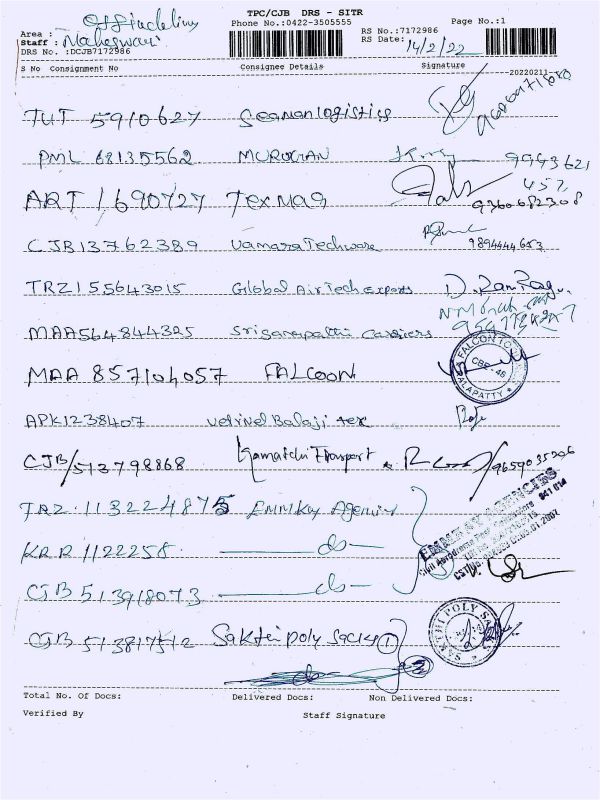 TPC/CJB DRS - SITR
Phone No.:0422-3505555
Page No.:1
Area :
Staff : Maheswari
DRS No. :DCJB7172986
RS No.:7172986
RS Date: 14/2/22
S No Consignment No Consignee Details Signature
20220211
TUT 5910627 Seaman logistics
PML 68135562 MURUGAN 9943621
457
ART 1690727 Tex mag 9360682308
CJB13762389 Vamana Techware 9894444653
TRZ155643015 Global AirTech Exports
MAA564844325 Sriganapathi Carriers
MAA 857104057 FALCOON
CBE - 48
APK1238407 Vetrivel Balaji tex
CJB/513798868 Kamatchi Transport 9659035296
TRZ 113224875 EMMKay Agency
EMMKAY AGENCIES
KRR 1122258 do
CJB 513918073 do
CJB 513817512 Sakthi poly sacks ①
SAKTHI POLY SACKS
do ②
Total No. Of Docs: Delivered Docs: Non Delivered Docs:
Verified By Staff Signature